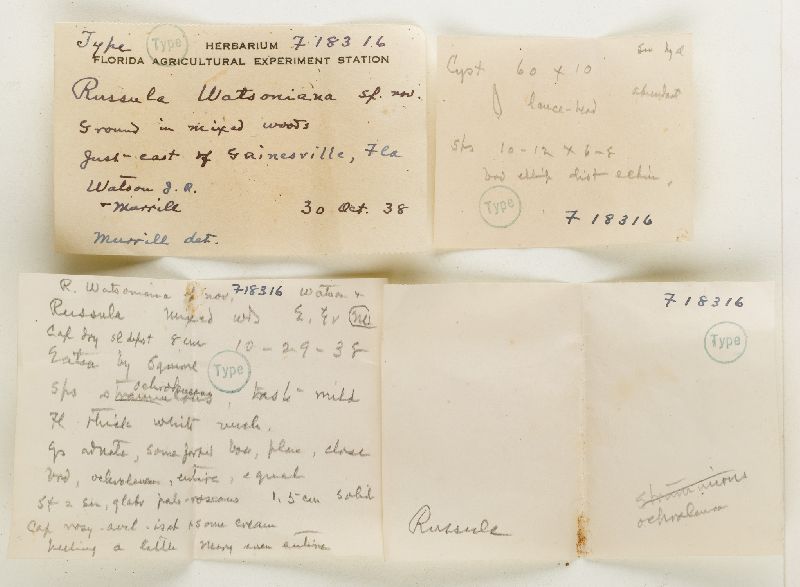 Type Type HERBARIUM 718316
FLORIDA AGRICULTURAL EXPERIMENT STATION
Russula Watsoniana sp. nov.
Ground in mixed woods
just east of Gainesville, Fla
Watson J. R.
+ Murrill 30 Oct. 38
Murrill det.
Cyst 60 x 10
lance-head abundant
Sps 10-12 x 6-8
dist echin.
Type
718316
R. Watsoniana sp nov. 718316 Watson +
Russula mixed wds
Cap dry sl dept 8 cm 10-29-38
Eaten by Squirrel
Type
Sps ochroleucous, taste mild
Fl thick white unch.
Gs adnate, some forked base, close
brd, ochroleucous, entire, equal
glabr pale-roseous 1.5 cm solid
Cap rosy-avel-isab + some cream
peeling a little marg even entire
718316
Type
Russula
stramineous
ochroleucous